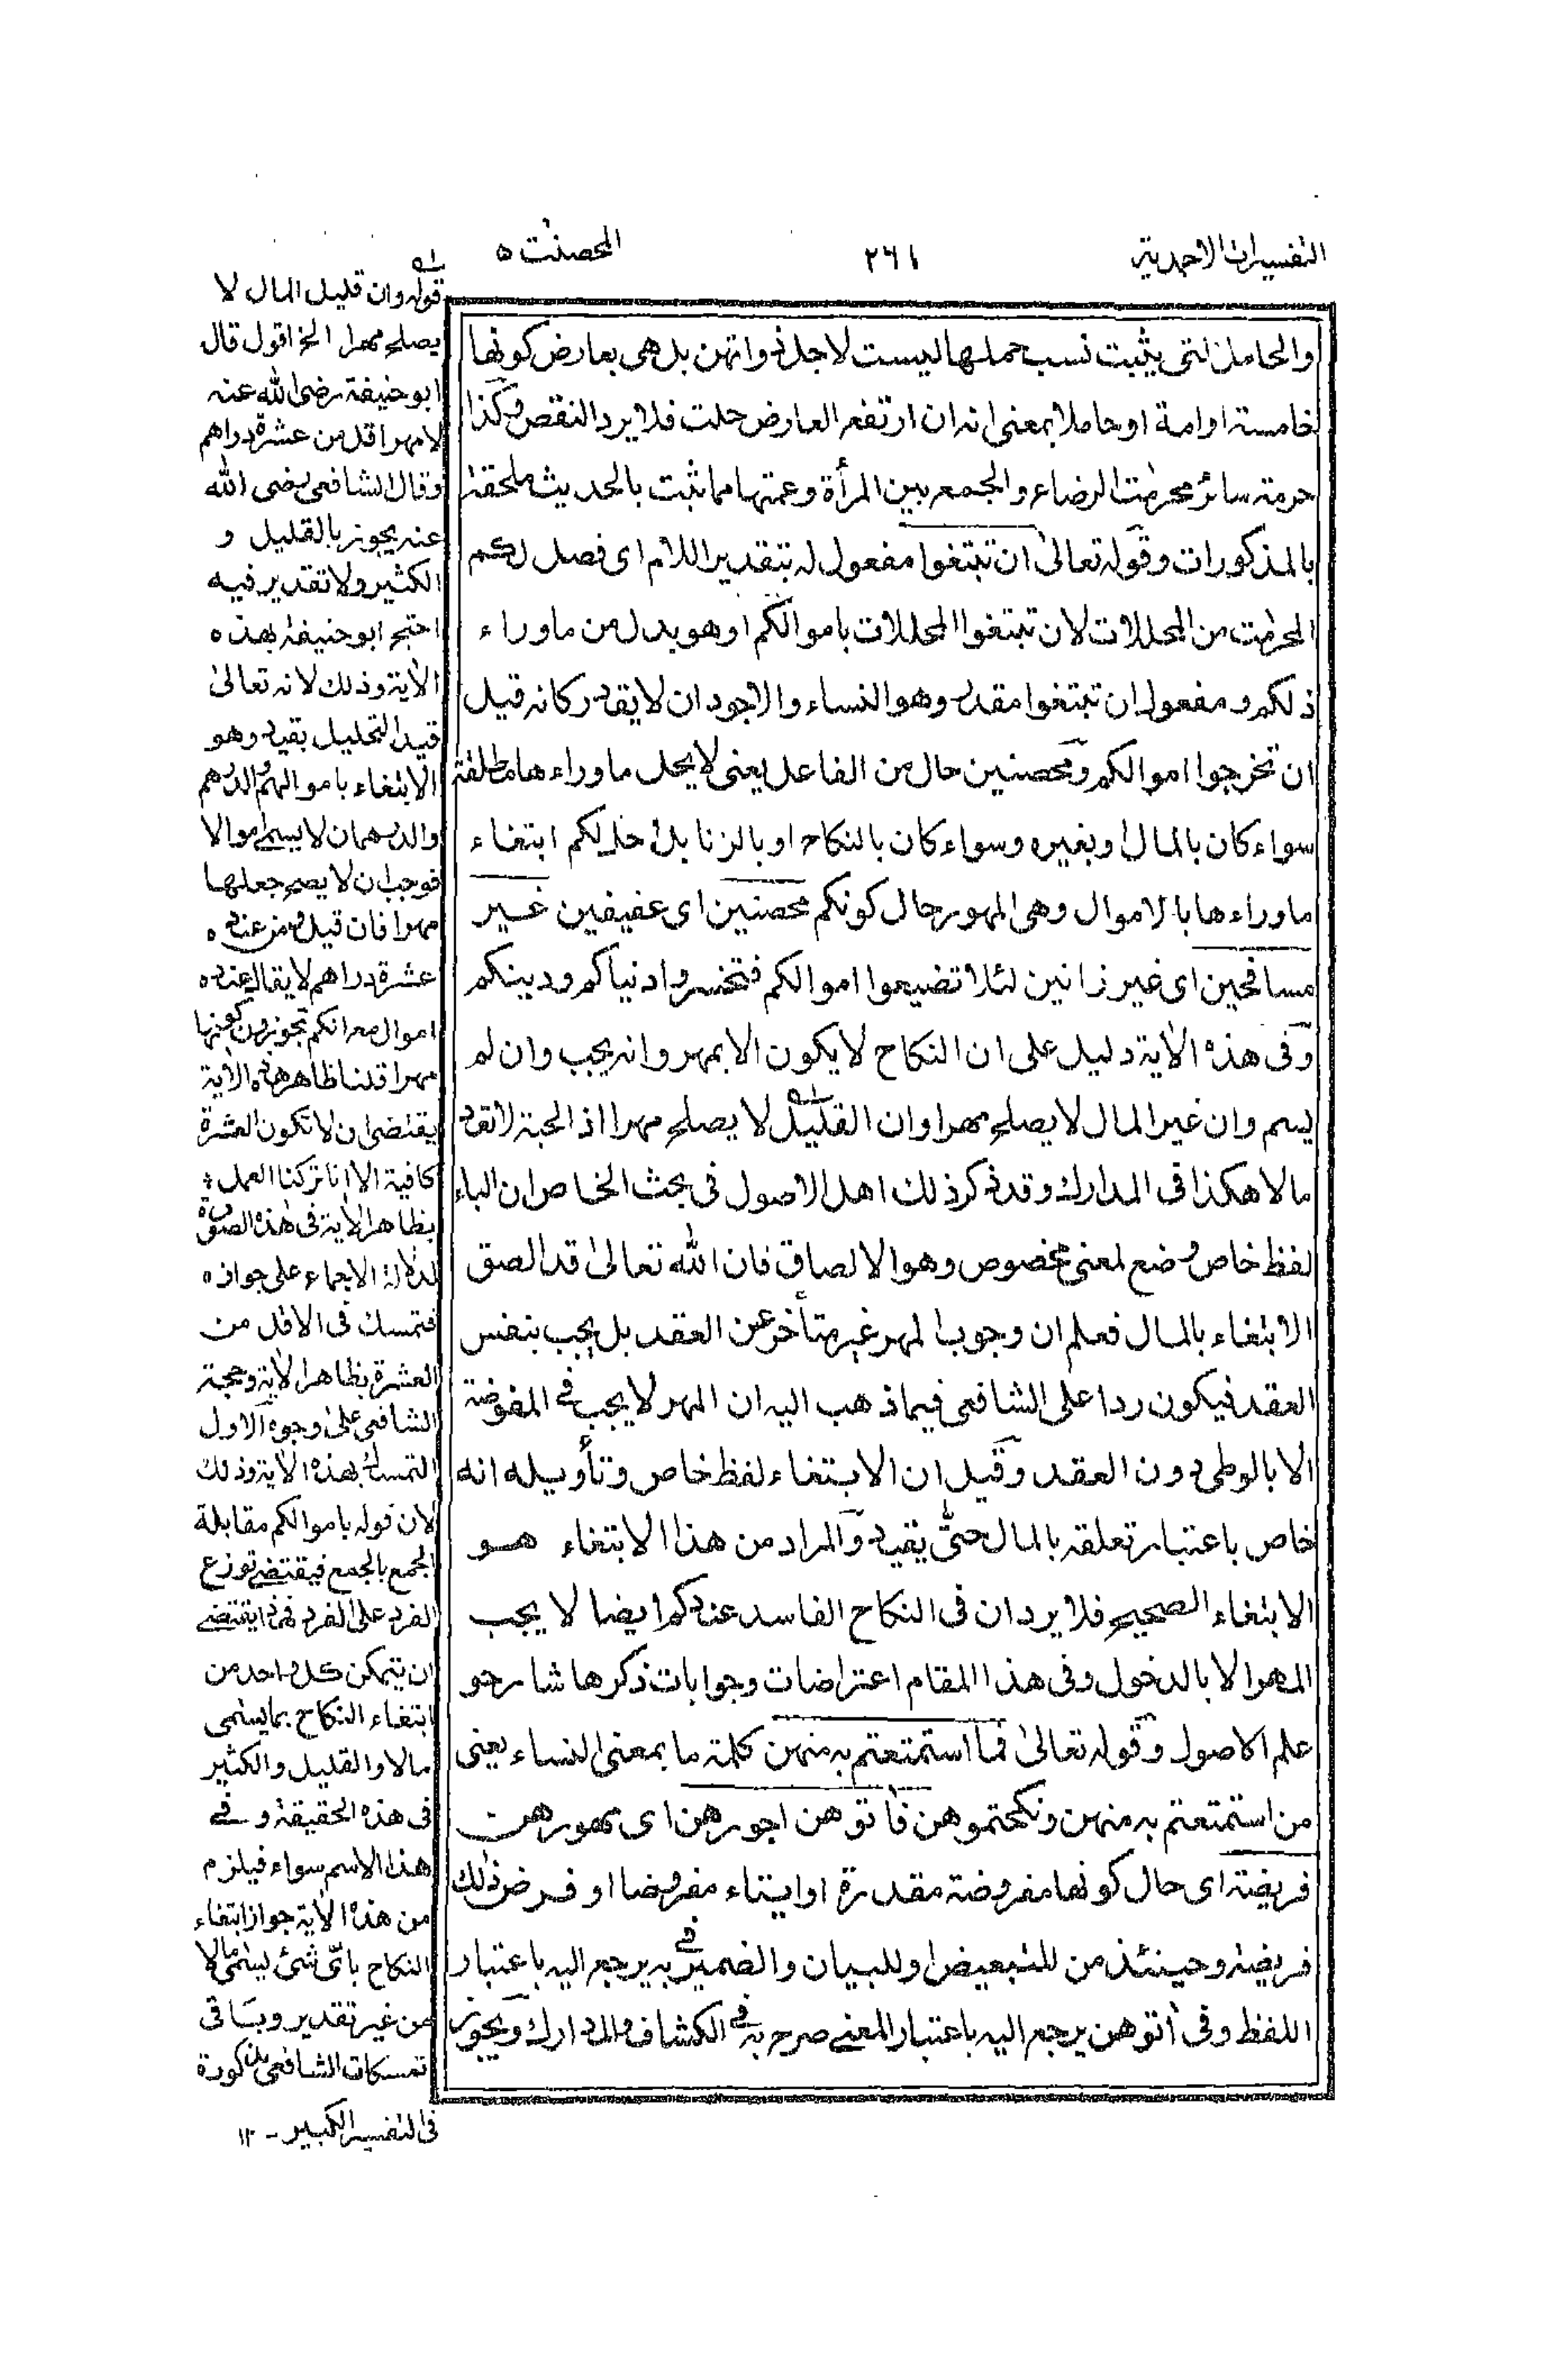 التفسيرات الاحمدية
٢٦١
المحصنٰت ٥
والحامل التى يثبت نسب حملها ليست لاجل ذواتهن بل هى بعارض كونها
خامسة او امة او حاملا بمعنى انه ان ارتفع العارض حلت فلا يرد النقض وكذا
حرمة سائر محرمٰت الرضاع والجمع بين المرأة وعمتها مما ثبت بالحديث ملحقة
بالمذكورات وقوله تعالىٰ ان تبتغوا مفعول له بتقدير اللام اى فصل لكم
المحرمٰت من المحللات لان تبتغوا المحللات باموالكم او هو بدل من ما وراء
ذلكم ومفعول ان تبتغوا مقدر وهو النساء والاجود ان لا يقدر كانه قيل
ان تخرجوا اموالكم ومحصنين حال من الفاعل يعنى لا يحل ما وراءها مطلقة
سواء كان بالمال او بغيره وسواء كان بالنكاح او بالزنا بل احل لكم ابتغاء
ما وراءها بالاموال وهى المهور حال كونكم محصنين اى عفيفين غير
مسافحين اى غير زانين لئلا تضيعوا اموالكم فتخسروا دنياكم ودينكم
وفى هذه الاٰية دليل على ان النكاح لا يكون الا بمهر وانه يجب وان لم
يسم وان غير المال لا يصلح مهرا وان القليل لا يصلح مهرا اذ الحبة لا تعد
مالا هكذا فى المدارك وقد ذكر ذلك اهل الاصول فى بحث الخاص ان الباء
لفظ خاص وضع لمعنى مخصوص وهو الالصاق فان الله تعالىٰ قد الصق
الابتغاء بالمال فعلم ان وجوب المهر غير متأخر عن العقد بل يجب بنفس
العقد فيكون ردا على الشافعى فيما ذهب اليه ان المهر لا يجب فى المفوضة
الا بالوطى دون العقد وقيل ان الابتغاء لفظ خاص وتأويله انه
خاص باعتبار تعلقه بالمال حتّٰى يقيد والمراد من هذا الابتغاء هو
الابتغاء الصحيح فلا يرد ان فى النكاح الفاسد عندكم ايضا لا يجب
المهر الا بالدخول وفى هذا المقام اعتراضات وجوابات ذكرها شارحو
علم الاصول وقوله تعالىٰ فما استمتعتم به منهن كلمة ما بمعنى النساء يعنى
من استمتعتم به منهن ونكحتموهن فاٰتوهن اجورهن اى مهورهن
فريضة اى حال كونها مفروضة مقدرة او ايتاء مفروضا او فرض ذٰلك
فريضة وحينئذ من للتبعيض او للبيان والضمير فى به يرجع اليه باعتبار
اللفظ وفى اٰتوهن يرجع اليه باعتبار المعنى صرح به فى الكشاف والمدارك ويجوز
قوله وان قليل المال لا
يصلح مهرا الخ اقول قال
ابو حنيفة رضى الله عنه
لا مهر اقل من عشرة دراهم
وقال الشافعى رضى الله
عنه يجوز بالقليل و
الكثير ولا تقدير فيه
احتج ابو حنيفة بهذه
الاٰية وذلك لانه تعالىٰ
قيد التحليل بقيد وهو
الابتغاء باموالهم والدرهم
والدرهمان لا يسمى اموالا
فوجب ان لا يصح جعلها
مهرا فان قيل ومن عنده
عشرة دراهم لا يقال عنده
اموال مع انكم تجوزون كونها
مهرا قلنا ظاهر هذه الاٰية
يقتضى ان لا تكون العشرة
كافية الا انا تركنا العمل
بظاهر الاٰية فى هذه الصورة
لدلالة الاجماع على جوازه
فتمسك فى الاقل من
العشرة بظاهر الاٰية وحجة
الشافعى علىٰ وجوه الاول
التمسك بهذه الاٰية وذلك
لان قوله باموالكم مقابلة
الجمع بالجمع فيقتضى توزع
الفرد على الفرد فهذا يقتضى
ان يتمكن كل واحد من
ابتغاء النكاح بما يسمى
مالا والقليل والكثير
فى هذه الحقيقة و فى
هذا الاسم سواء فيلزم
من هذه الاٰية جواز ابتغاء
النكاح باىّ شئ يسمى مالا
من غير تقدير وباقى
تمسكات الشافعى مذكورة
فى التفسير الكبير - ١٢